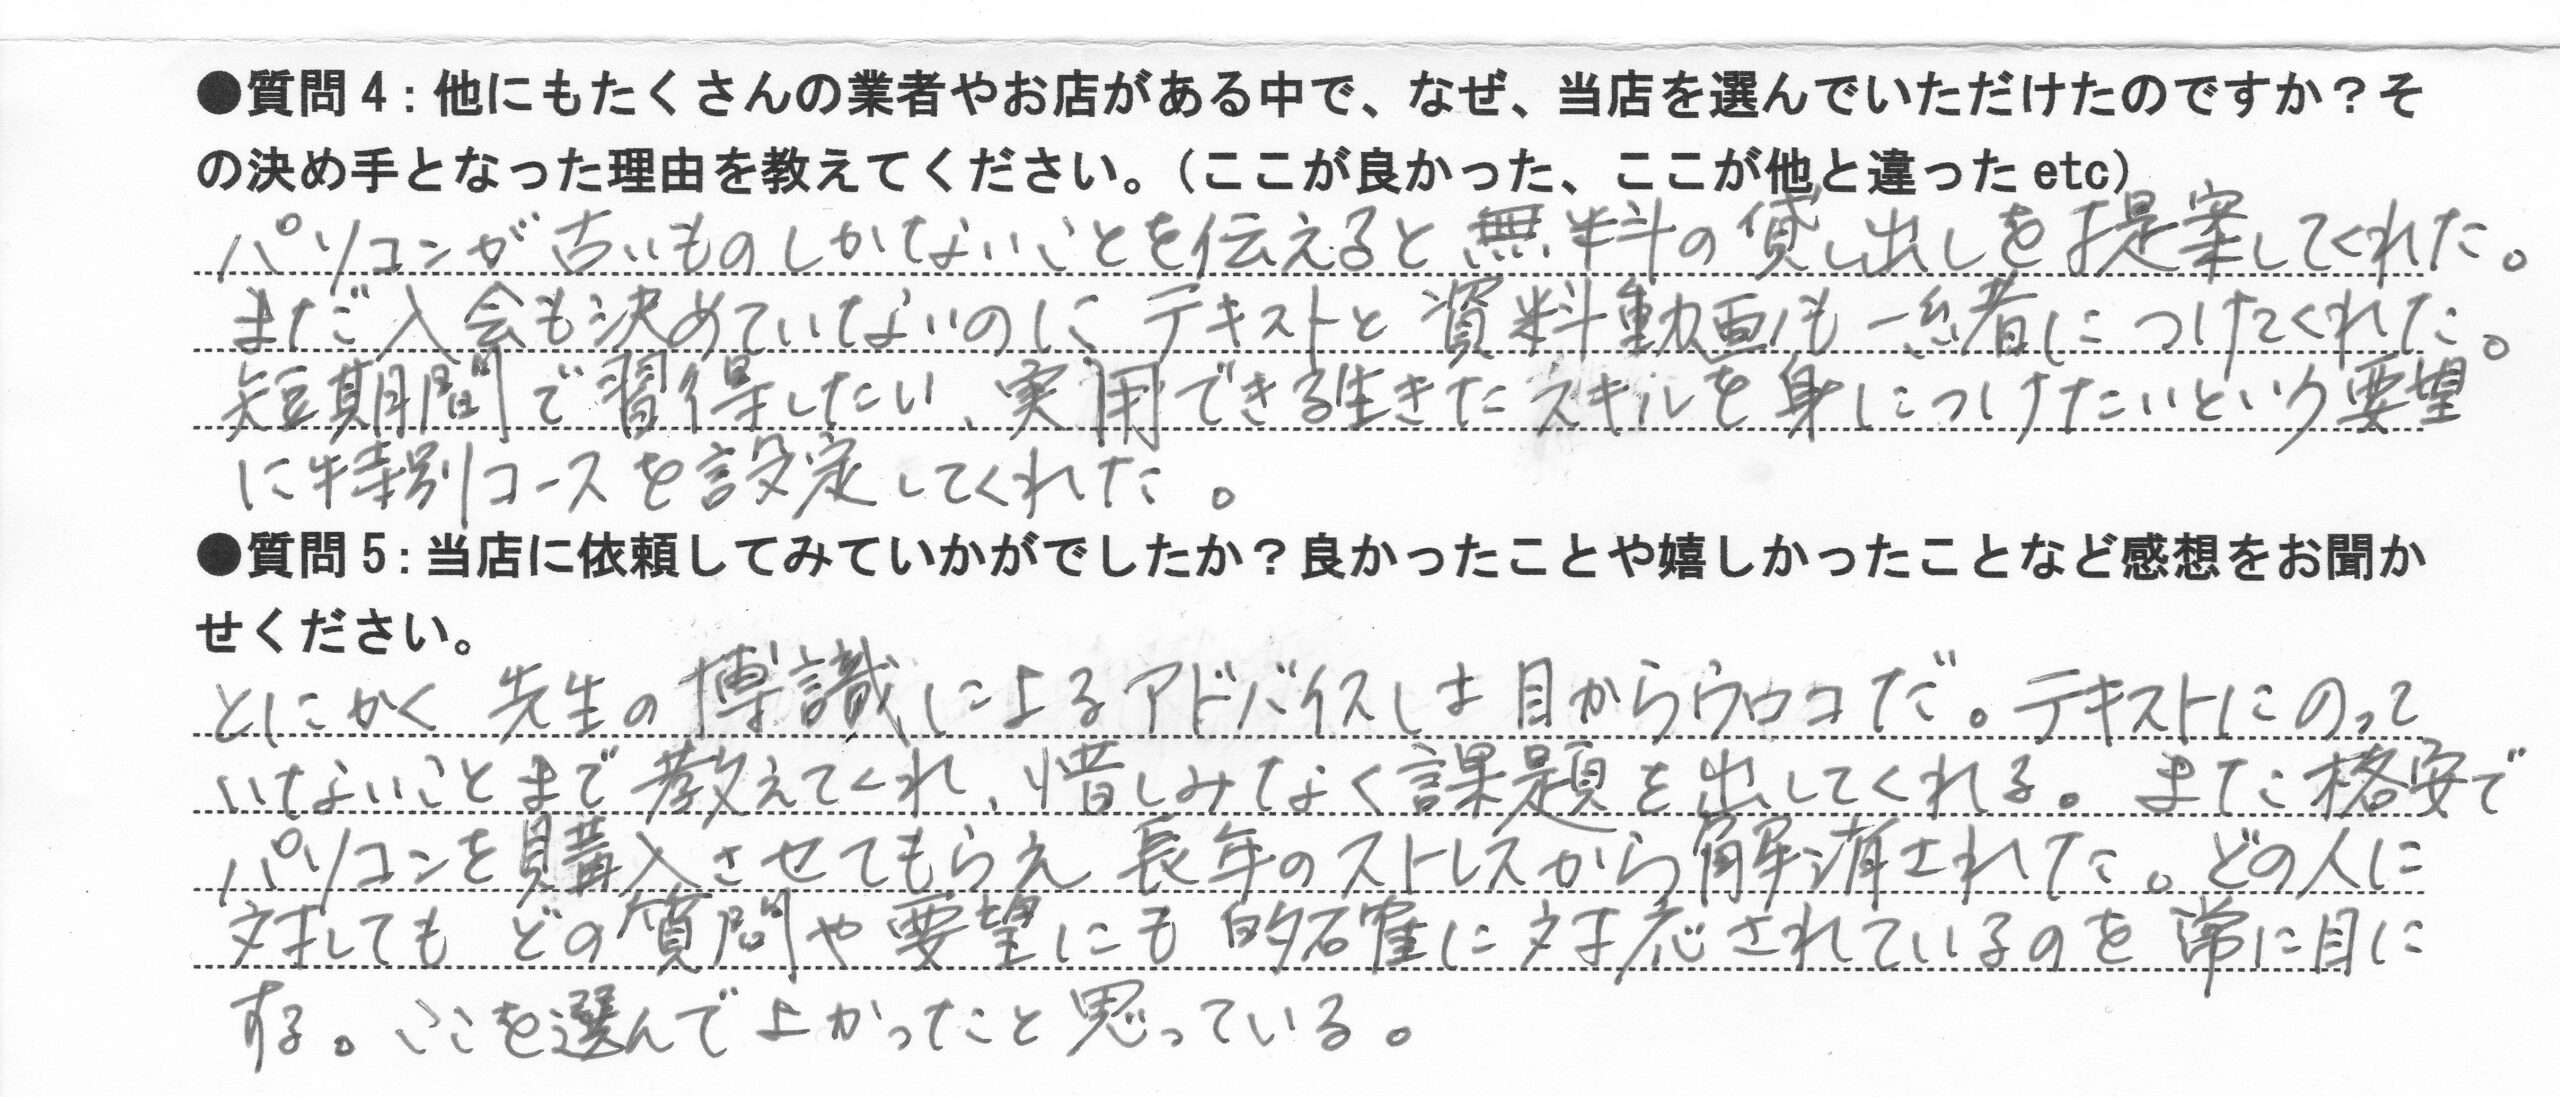 ●質問4:他にもたくさんの業者やお店がある中で、なぜ、当店を選んでいただけたのですか？そ
の決め手となった理由を教えてください。(ここが良かった、ここが他と違ったetc)
パソコンが古いものしかないことを伝えると無料の貸し出しを提案してくれた。
まだ入会も決めていないのにテキストと資料動画も一緒につけてくれた。
短期間で習得したい、実用できる生きたスキルを身につけたいという要望
に特別コースを設定してくれた。
●質問5:当店に依頼してみていかがでしたか？良かったことや嬉しかったことなど感想をお聞か
せください。
とにかく先生の博識によるアドバイスは目からウロコだ。テキストにのって
いないことまで教えてくれ、惜しみなく課題を出してくれる。また格安で
パソコンを購入させてもらえ長年のストレスから解消された。どの人に
対してもどの質問や要望にも的確に対応されているのを常に目に
する。ここを選んで良かったと思っている。